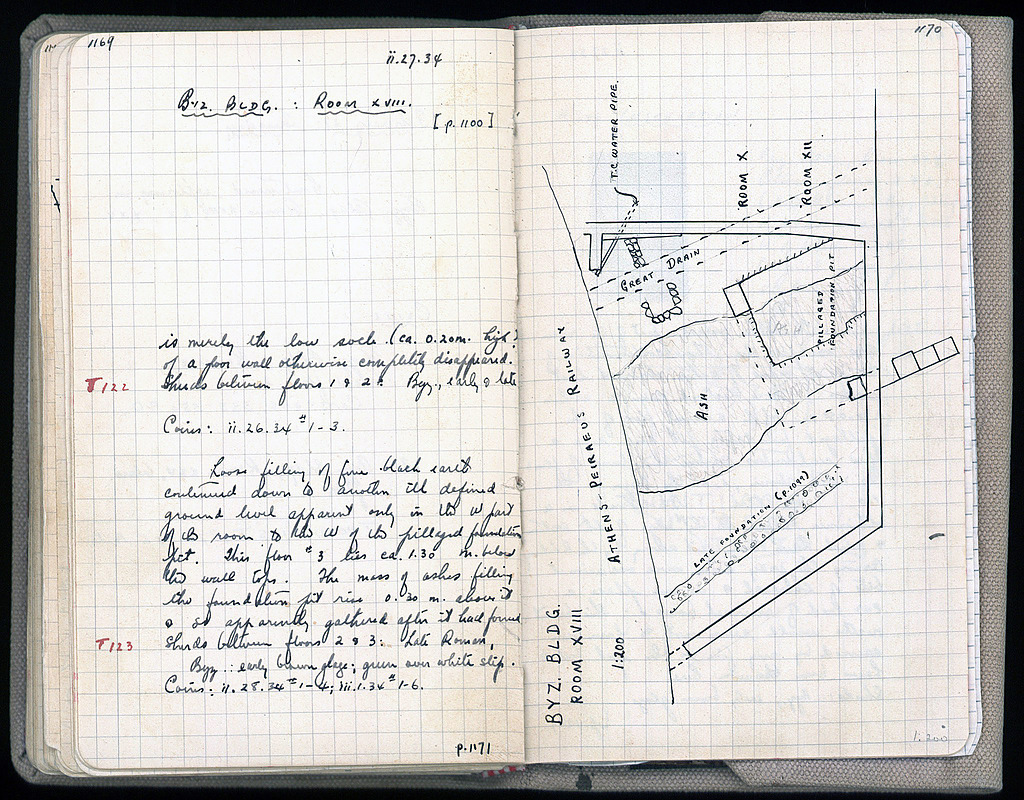 1169
ii.27.34
BYZ. BLDG. : ROOM XVIII.
[p.1100]
is merely the low socle (ca. 0.20m. high)
of a poor wall otherwise completely disappeared.
T122
Sherds between floors 1 & 2: Byz., early & late
Coins: ii.26.34 #1-3.
Loose filling of fine black earth
continued down to another ill defined
ground level apparent only in the W part
of the room to the W of the pillaged foundation
pit. This floor #3 lies ca. 1.30 m. below
the wall tops. The mass of ashes filling
the foundation pit rise 0.20 m. above it
& so apparently gathered after it had formed
T123
Sherds between floors 2 & 3: Late Roman,
Byz.: early brown glaze; green over white slip.
Coins: ii.28.34 #1-4; iii.1.34 #1-6.
p.1171
1170
T.C. WATER PIPE.
ROOM X
ROOM XII
GREAT DRAIN
PILLAGED
FOUNDATION PIT
ASH
ASH
ATHENS-PEIRAEUS RAILWAY
LATE FOUNDATION (p.1099)
BYZ. BLDG.
ROOM XVIII
1:200
1:200